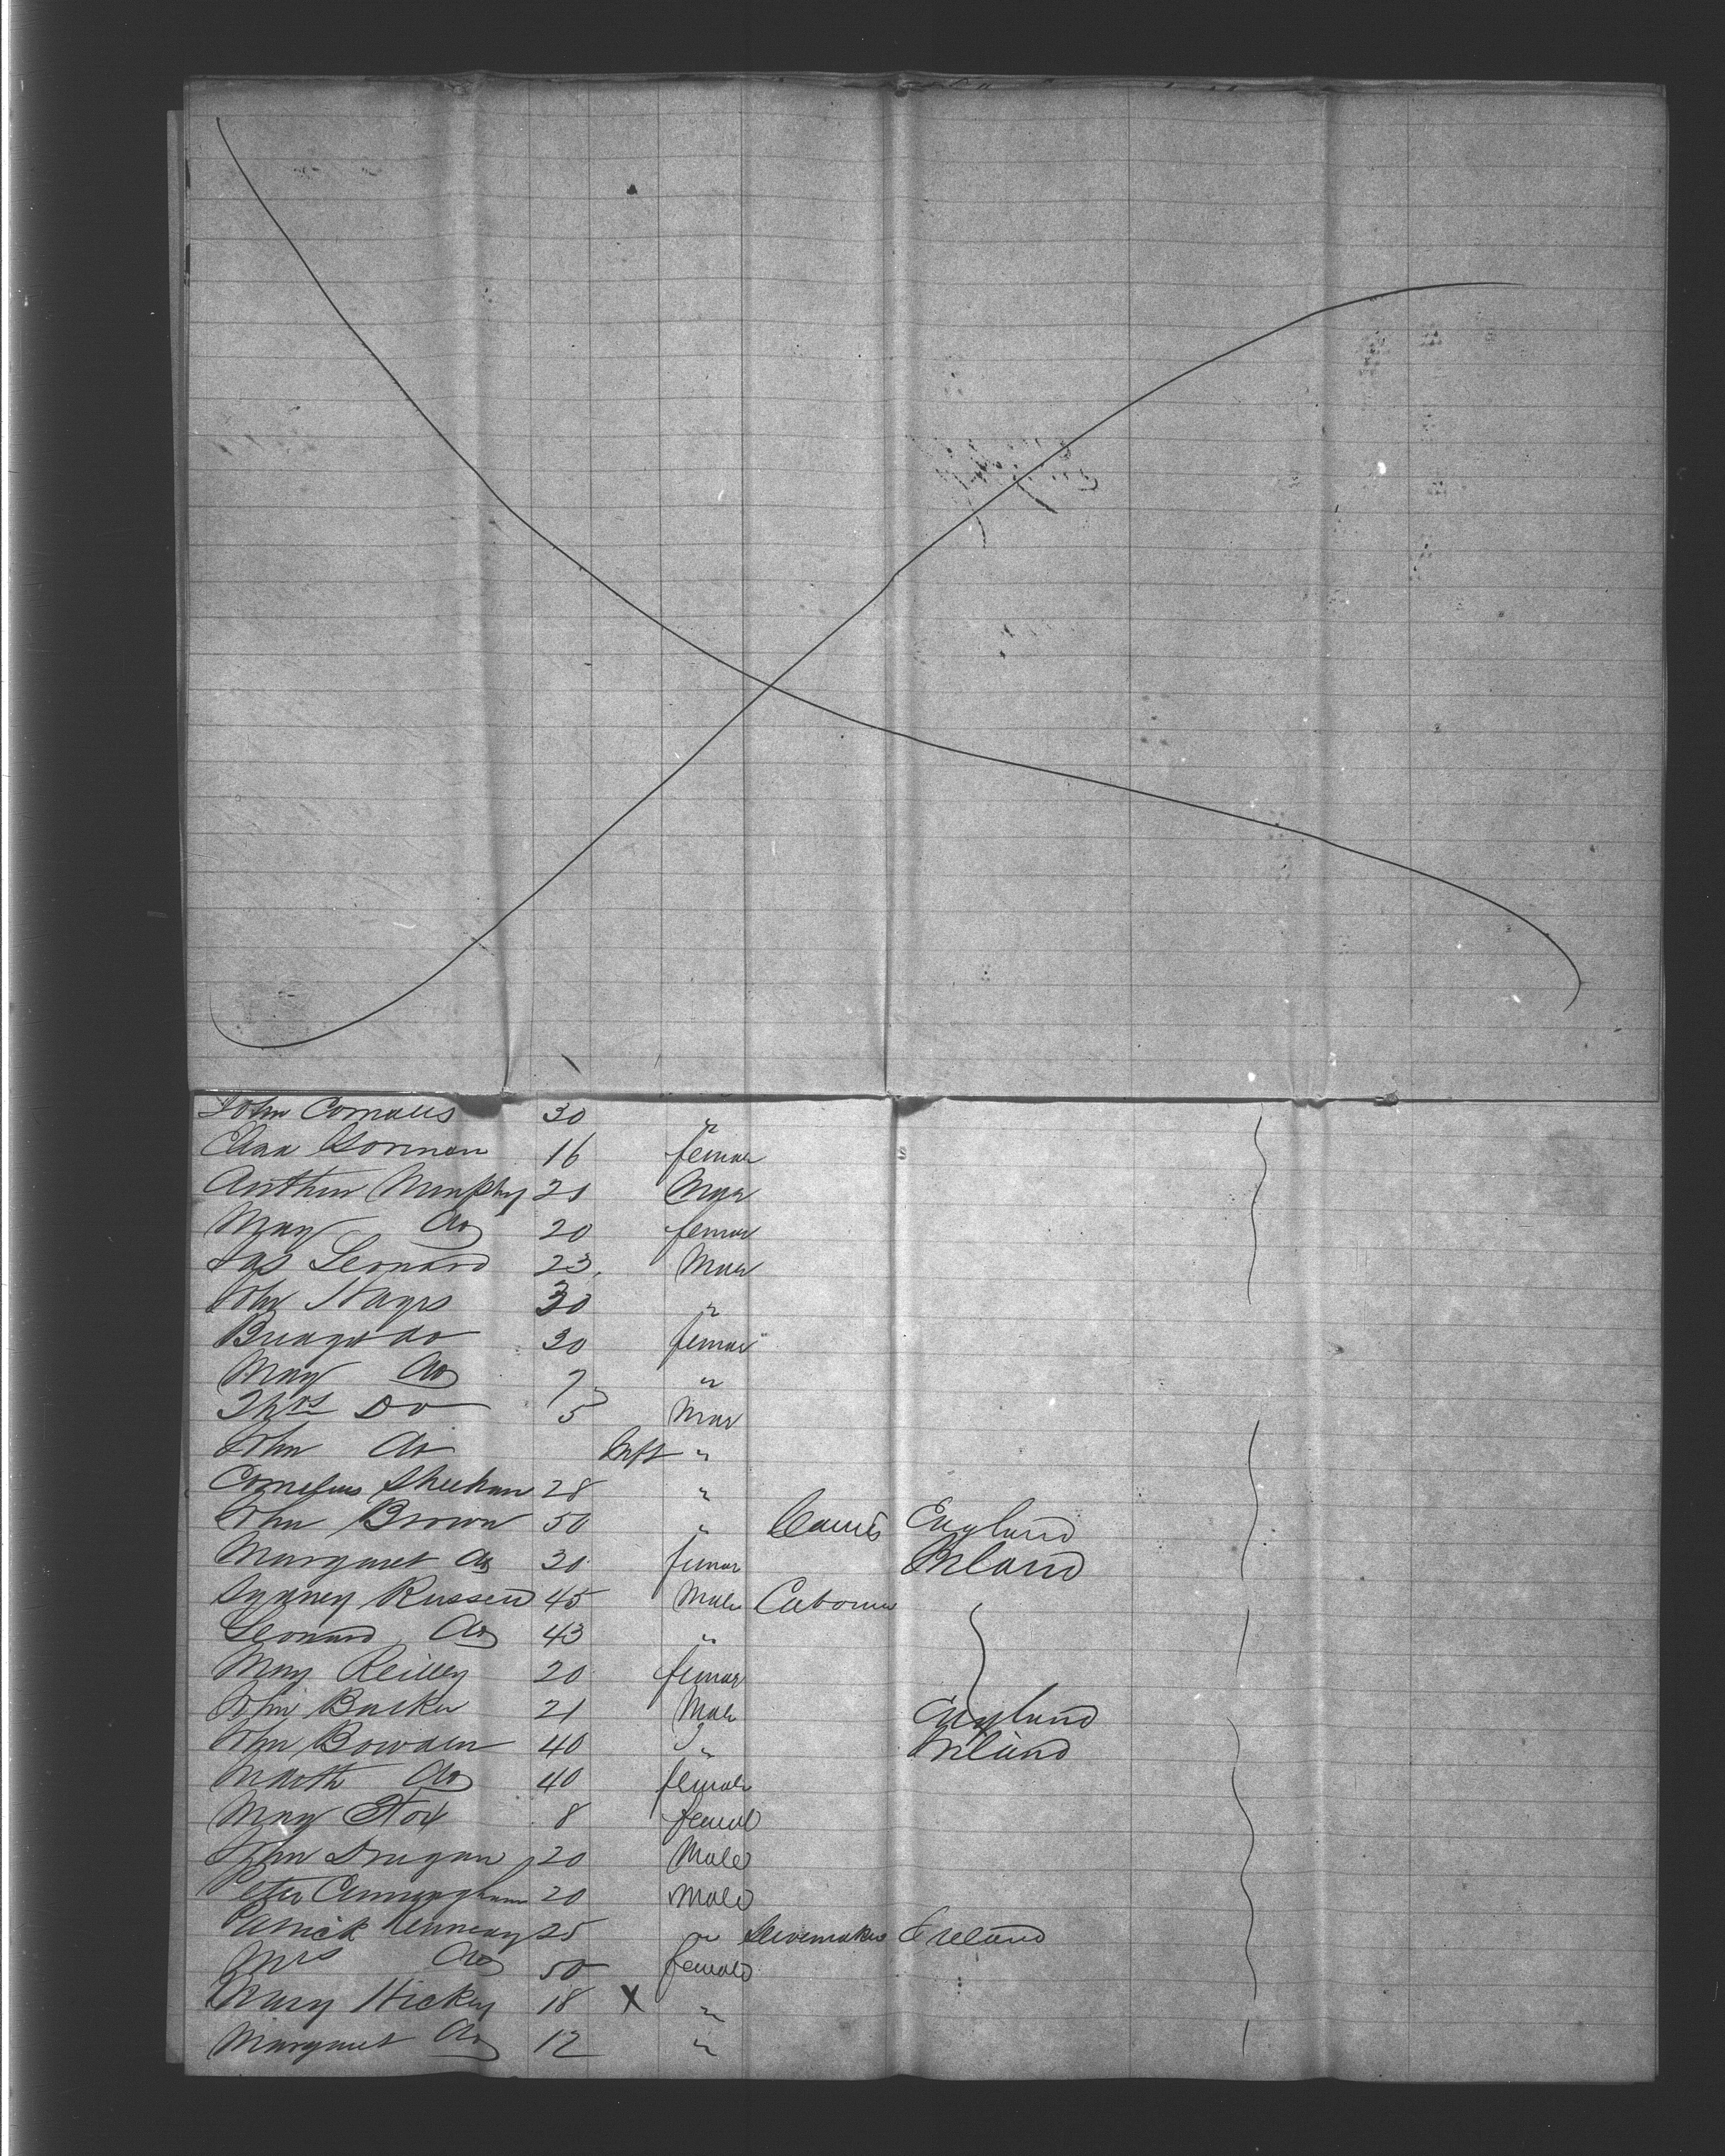 John Cornalis 30 "
Eliza Gorman 16 female
Arthur Murphy 21 Male
Mary do 20 female
Jas Leonard 23 Male
John Hayes 30 "
Bridget do 30 female
Mary do 7 "
Thos Do 5 Male
John do Inft "
Cornelius Sheehan 28 "
John Brown 50 " England
Margaret do 30 female Ireland
Sydney Russell 45 Male Laborer
Leonard do 43 "
Mary Reilley 20 female
John Barker 21 Male England
John Bowden 40 " Ireland
Marth do 40 female
Mary 8 female
John Drugan 20 Male
Peter Cunningham 20 Male
Patrick Kenneay 25 " Shoemaker Ireland
Mrs do 50 female
Mary Hickey 18 X "
Margaret do 12 "